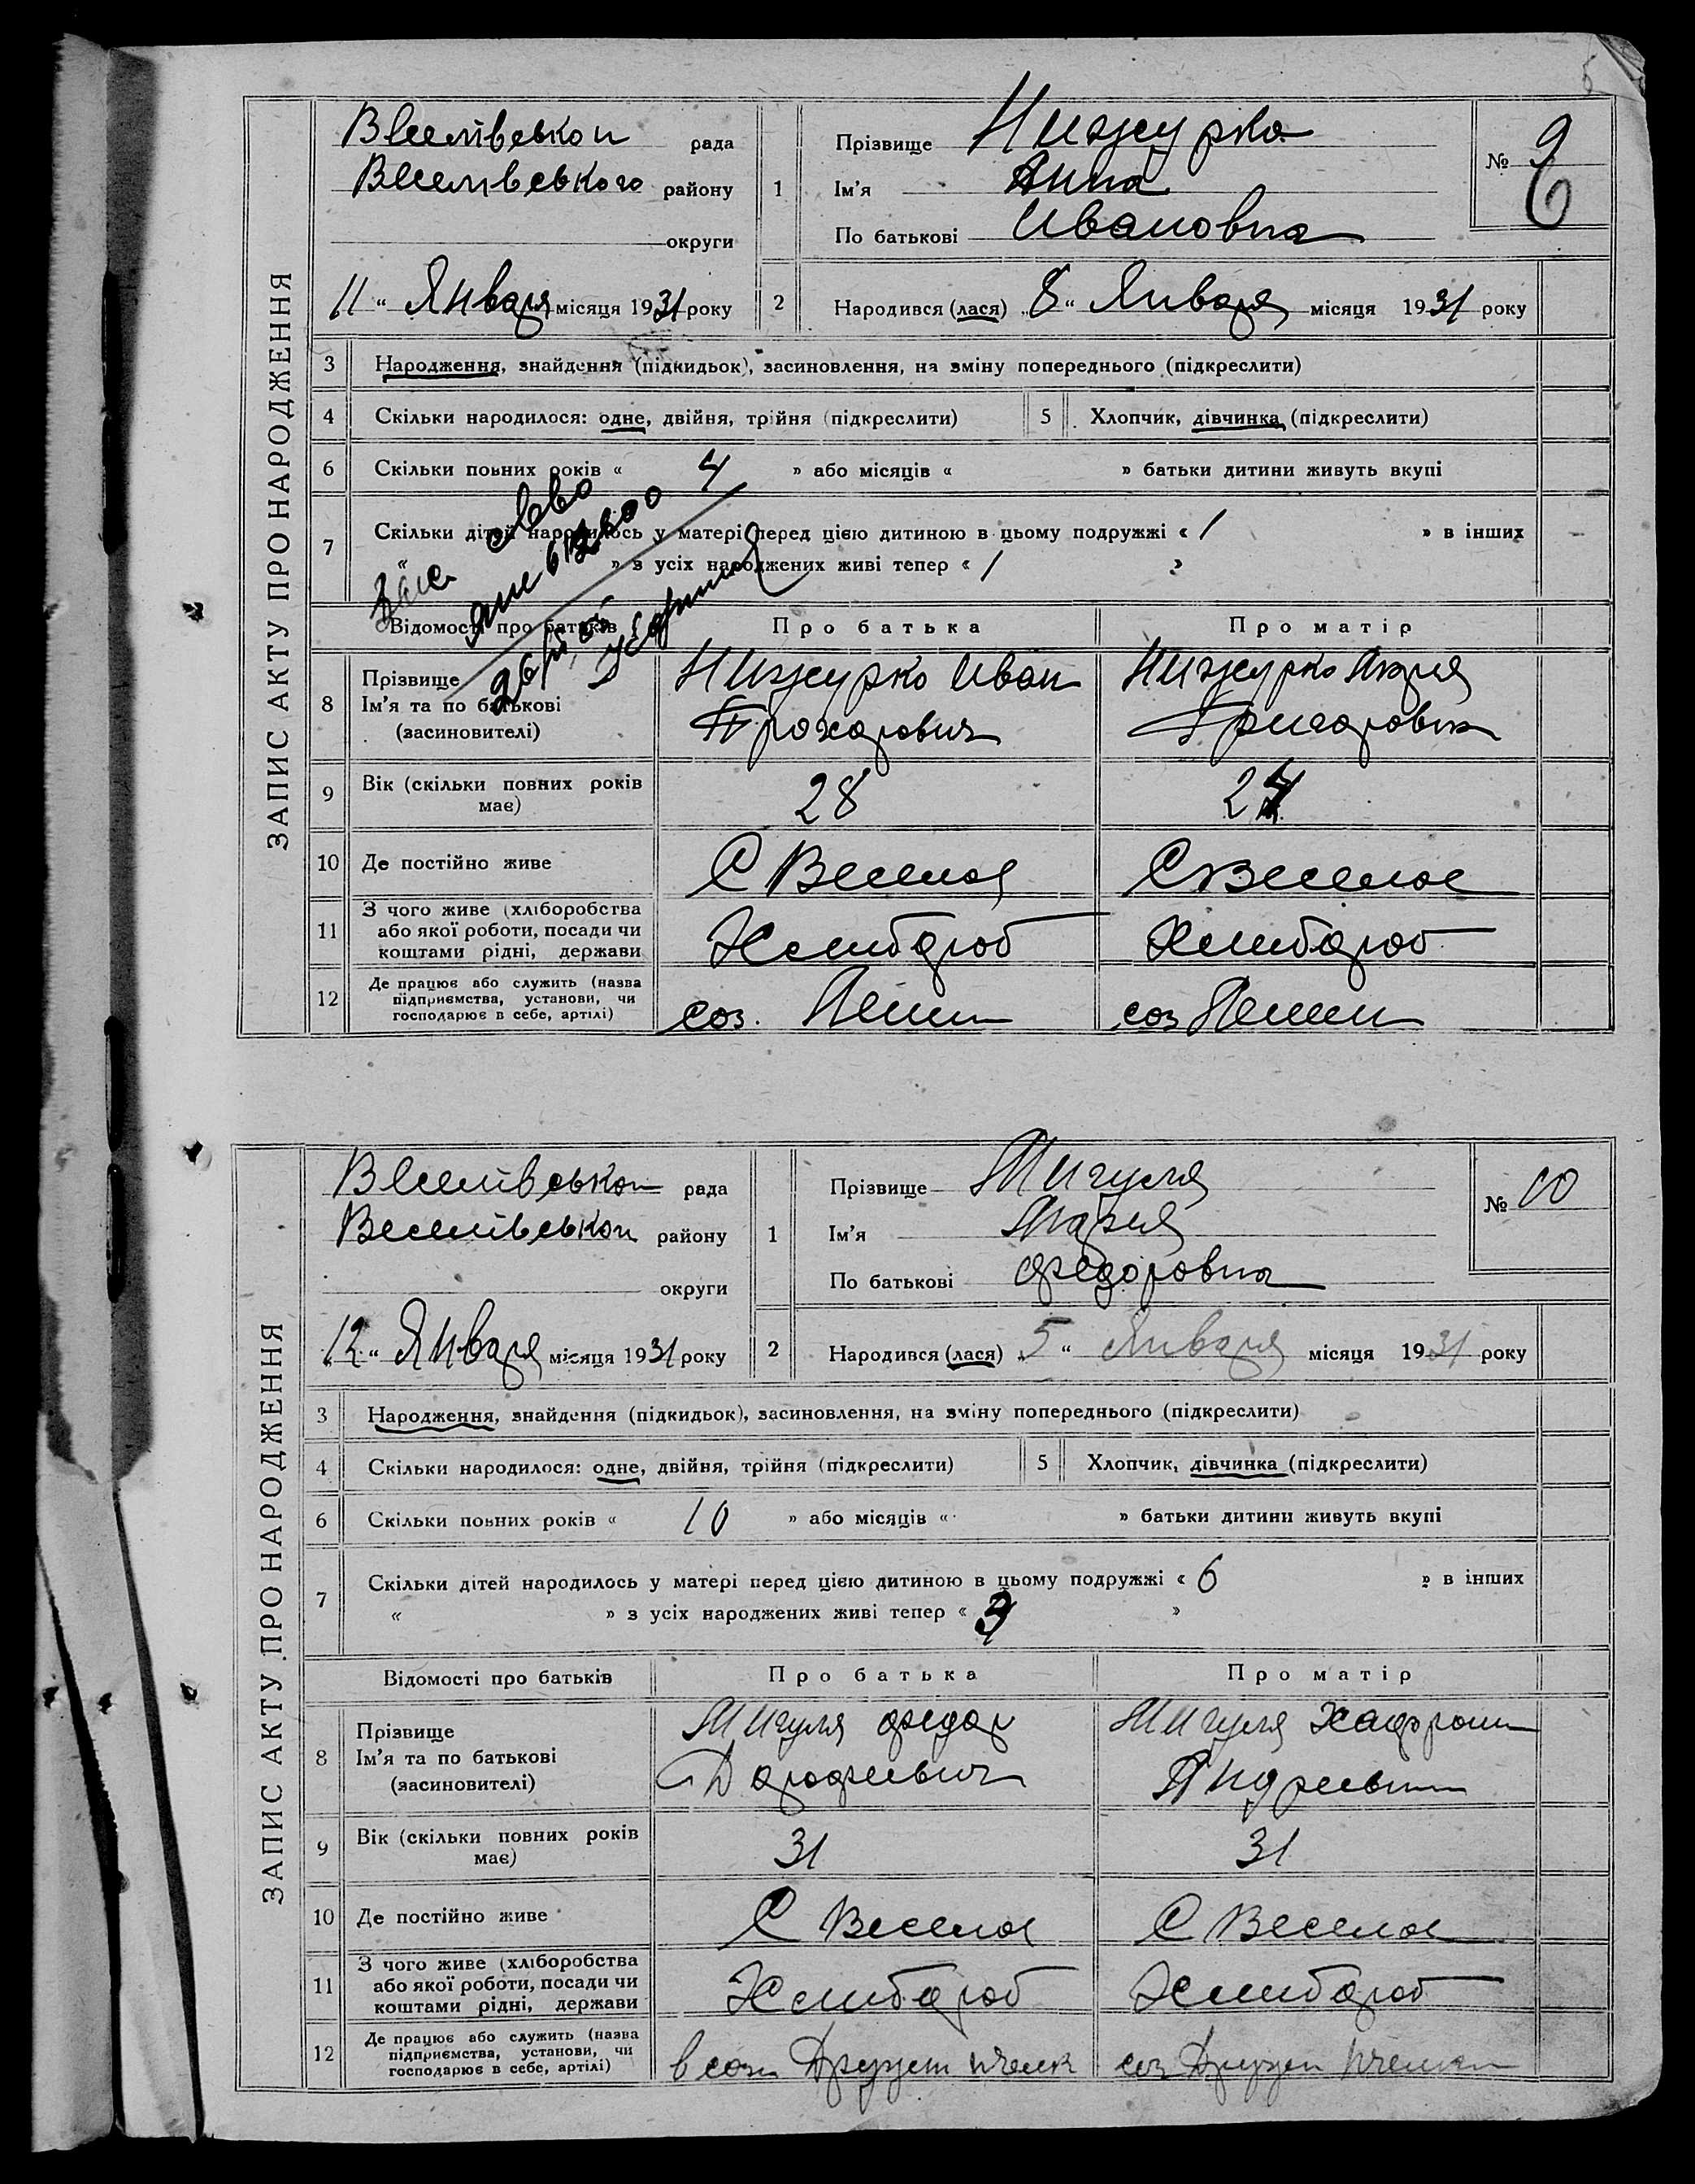 5
ЗАПИС АКТУ ПРО НАРОДЖЕННЯ
Веселівськои рада
Веселівського району
округи
11 " Января місяця 1931 року
1 Прізвище Нижурко
Ім'я Анна
По батькові Ивановна
№ 9
6
2 Народився (лася) „8 " Января місяця 1931 року
3 Народження, знайдення (підкидьок), засиновлення, на зміну попереднього (підкреслити)
4 Скільки народилося: одне, двійня, трійня (підкреслити) 5 Хлопчик, дівчинка (підкреслити)
6 Скільки повних років « 4 » або місяців « » батьки дитини живуть вкупі
7 Скільки дітей народилось у матері перед цією дитиною в цьому подружжі « 1 » в інших
« » з усіх народжених живі тепер « 1 »
Відомості про батьків Про батька Про матір
8 Прізвище Ім'я та по батькові (засиновителі)
Нижурко Иван Прохорович
Нижурко Мария Григоровна
9 Вік (скільки повних років має) 28 24
10 Де постійно живе С Веселое С Веселое
11 З чого живе (хліборобства або якої роботи, посади чи коштами рідні, держави
Хлибороб Хлибороб
12 Де працює або служить (назва підприємства, установи, чи господарює в себе, артілі)
соз. Ленин соз Ленин
ЗАПИС АКТУ ПРО НАРОДЖЕННЯ
Веселівськои рада
Веселівськои району
округи
12 " Января місяця 1931 року
1 Прізвище Мигуля
Ім'я Мария
По батькові Федоровна
№ 10
2 Народився (лася) „5 " Января місяця 1931 року
3 Народження, знайдення (підкидьок), засиновлення, на зміну попереднього (підкреслити)
4 Скільки народилося: одне, двійня, трійня (підкреслити) 5 Хлопчик, дівчинка (підкреслити)
6 Скільки повних років « 10 » або місяців « » батьки дитини живуть вкупі
7 Скільки дітей народилось у матері перед цією дитиною в цьому подружжі « 6 » в інших
« » з усіх народжених живі тепер « 3 »
Відомості про батьків Про батька Про матір
8 Прізвище Ім'я та по батькові (засиновителі)
Мигуля Федор Дорофеевич
Мигуля Андреевн
9 Вік (скільки повних років має) 31 31
10 Де постійно живе С Веселое С Веселое
11 З чого живе (хліборобства або якої роботи, посади чи коштами рідні, держави
Хлибороб Хлибороб
12 Де працює або служить (назва підприємства, установи, чи господарює в себе, артілі)
в соз соз